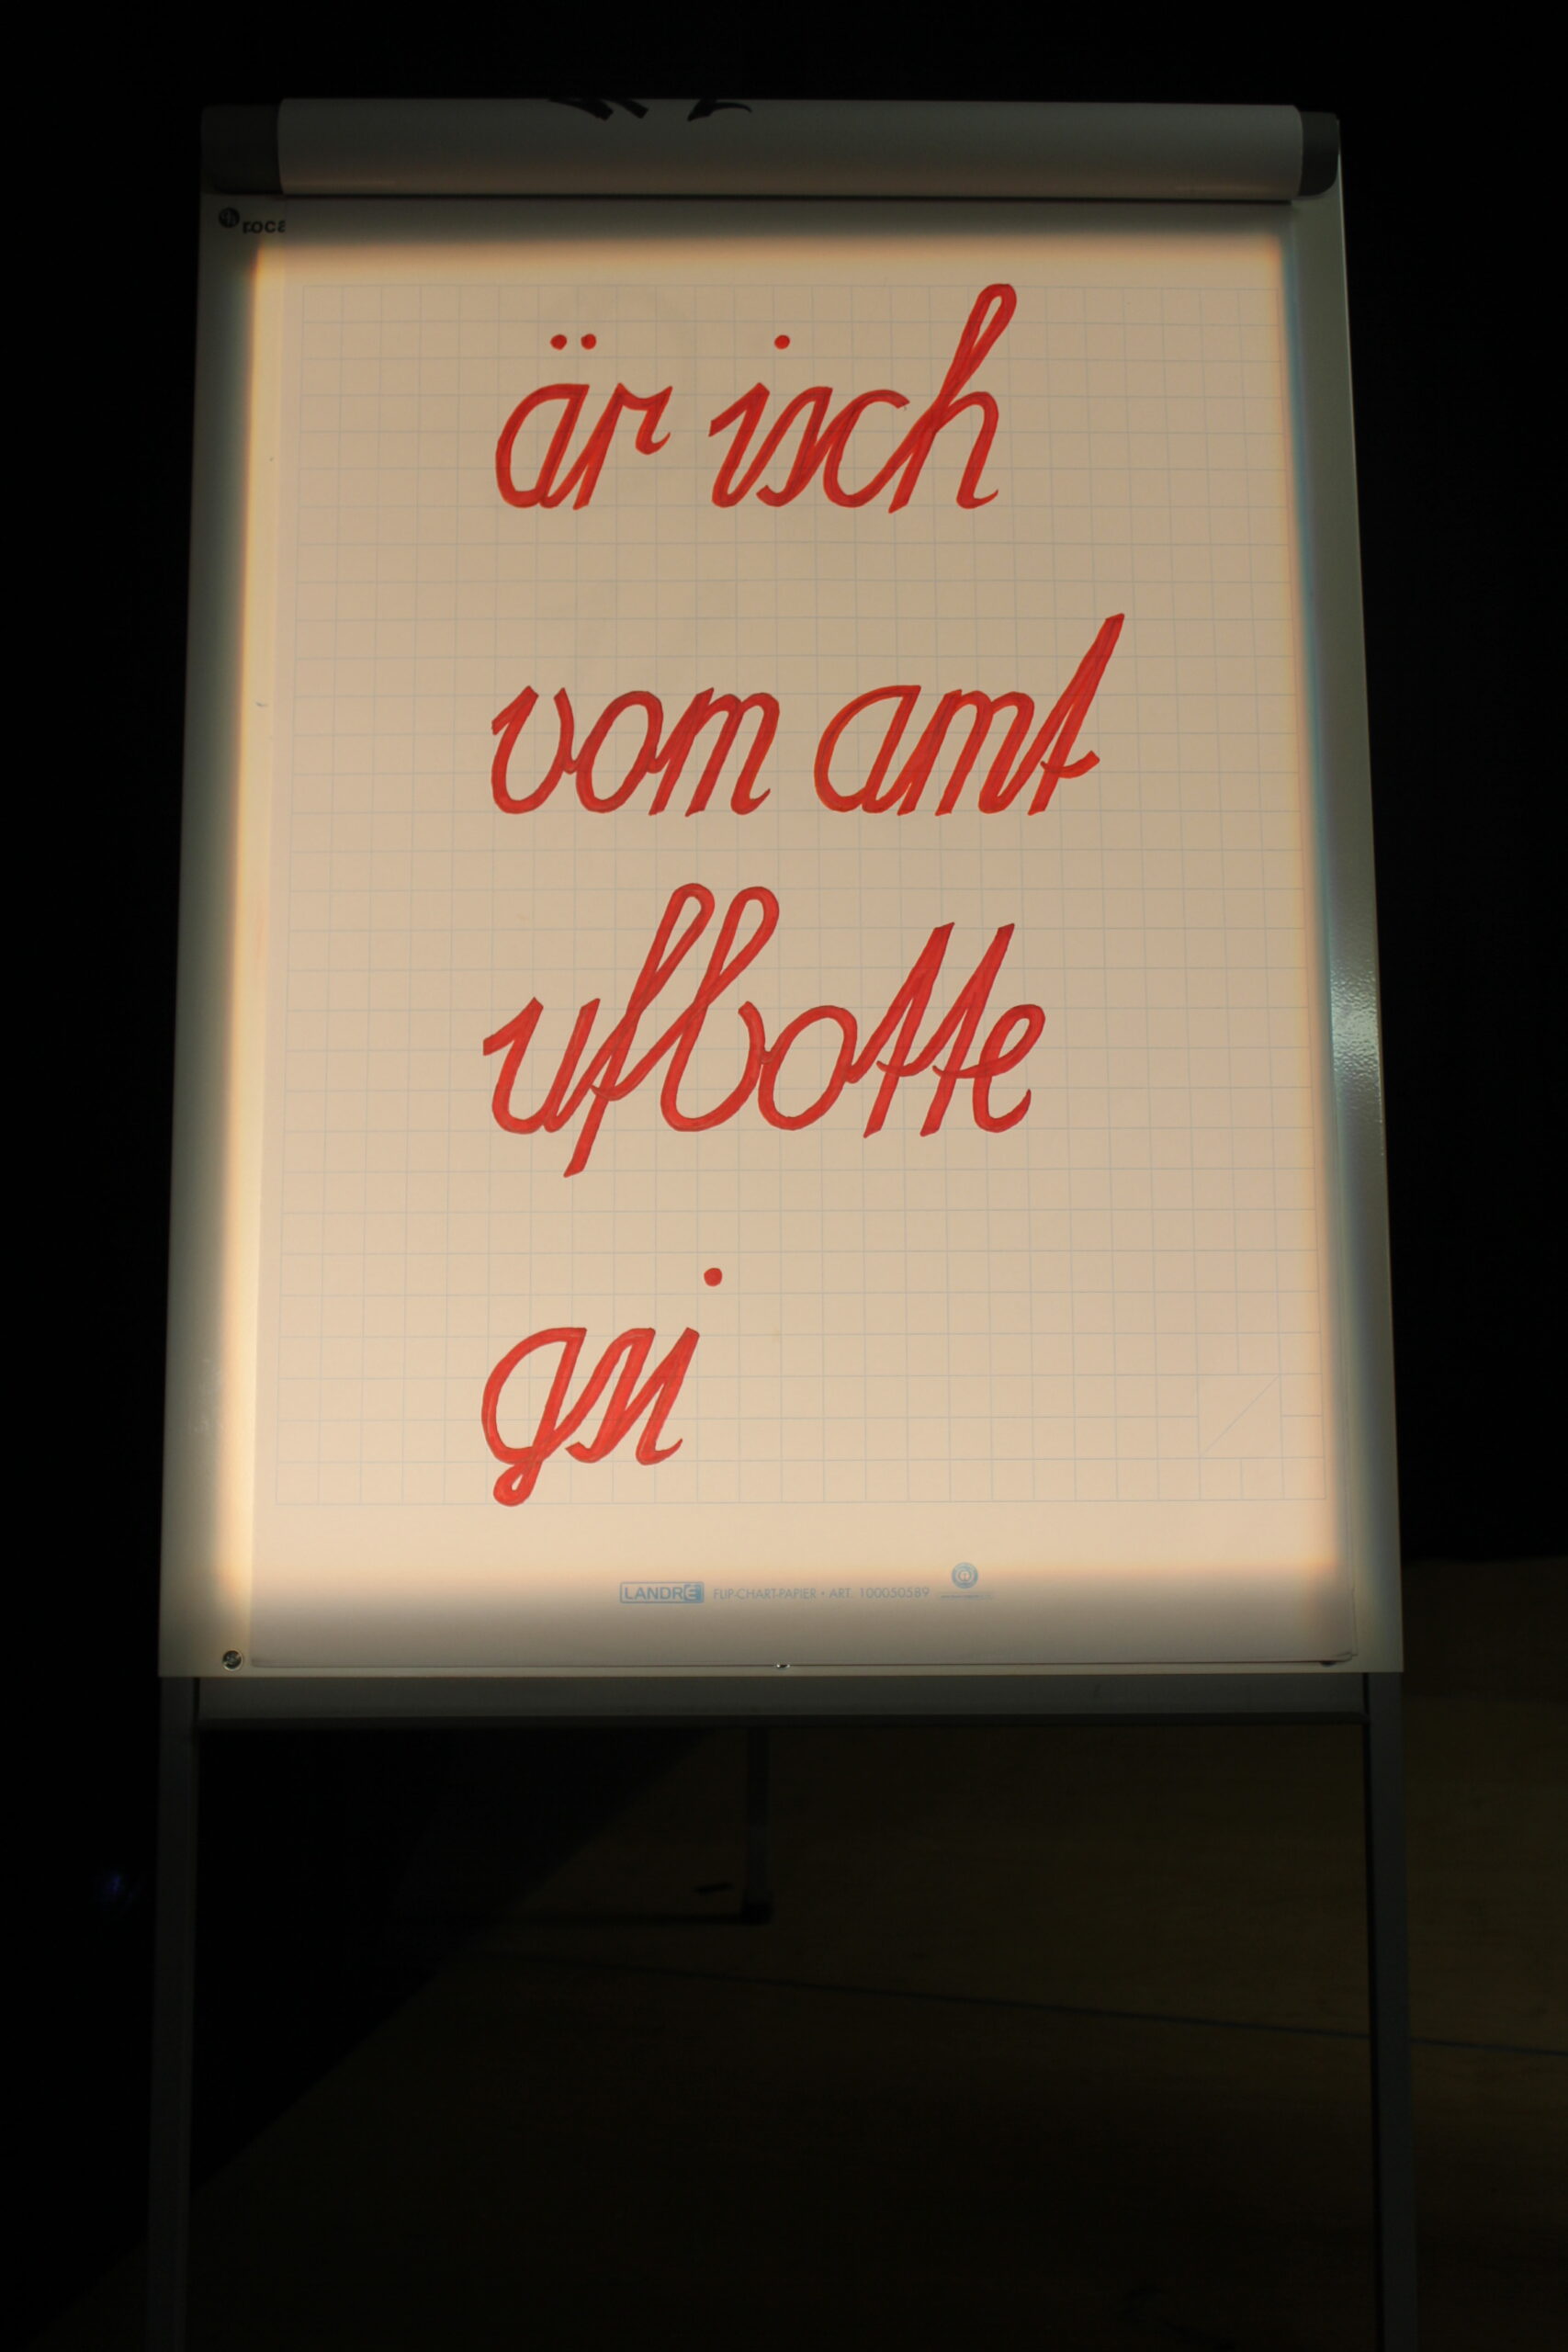 roca
är isch
vom amt
ufbotte
gsi
LANDRÉ FLIP-CHART-PAPIER • ART. 100050589